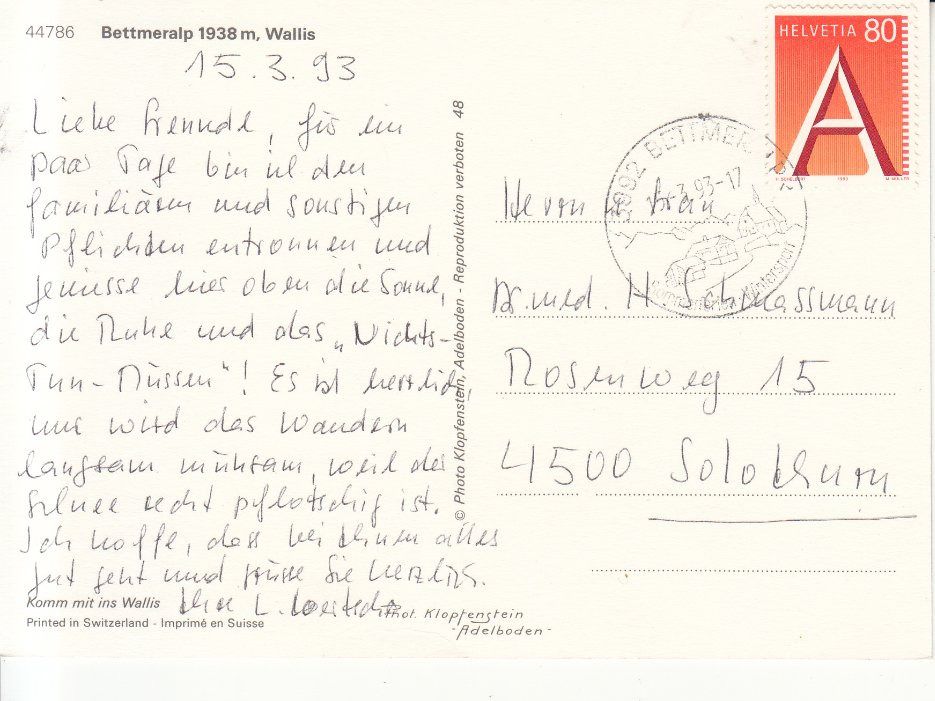 44786 Bettmeralp 1938 m, Wallis
15.3.93
Liebe Freunde, für ein
paar Tage bin ich den
familiären und sonstigen
Pflichten entronnen und
geniesse hier oben die Sonne,
die Ruhe und das „Nichts-
Tun-Müssen"! Es ist herrlich,
nur wird das Wandern
langsam mühsam, weil der
Schnee recht pflotschig ist.
Ich hoffe, dass bei Ihnen alles
gut geht und grüsse Sie herzlich.
Ihre L.
Komm mit ins Wallis
Printed in Switzerland - Imprimé en Suisse
Phot. Klopfenstein
-Adelboden-
© Photo Klopfenstein, Adelboden - Reproduktion verboten 48
HELVETIA 80
A
1993
3992 BETTMERALP
.3.93-17
Herrn
Dr. med. H. Schmassmann
Rosenweg 15
4500 Solothurn